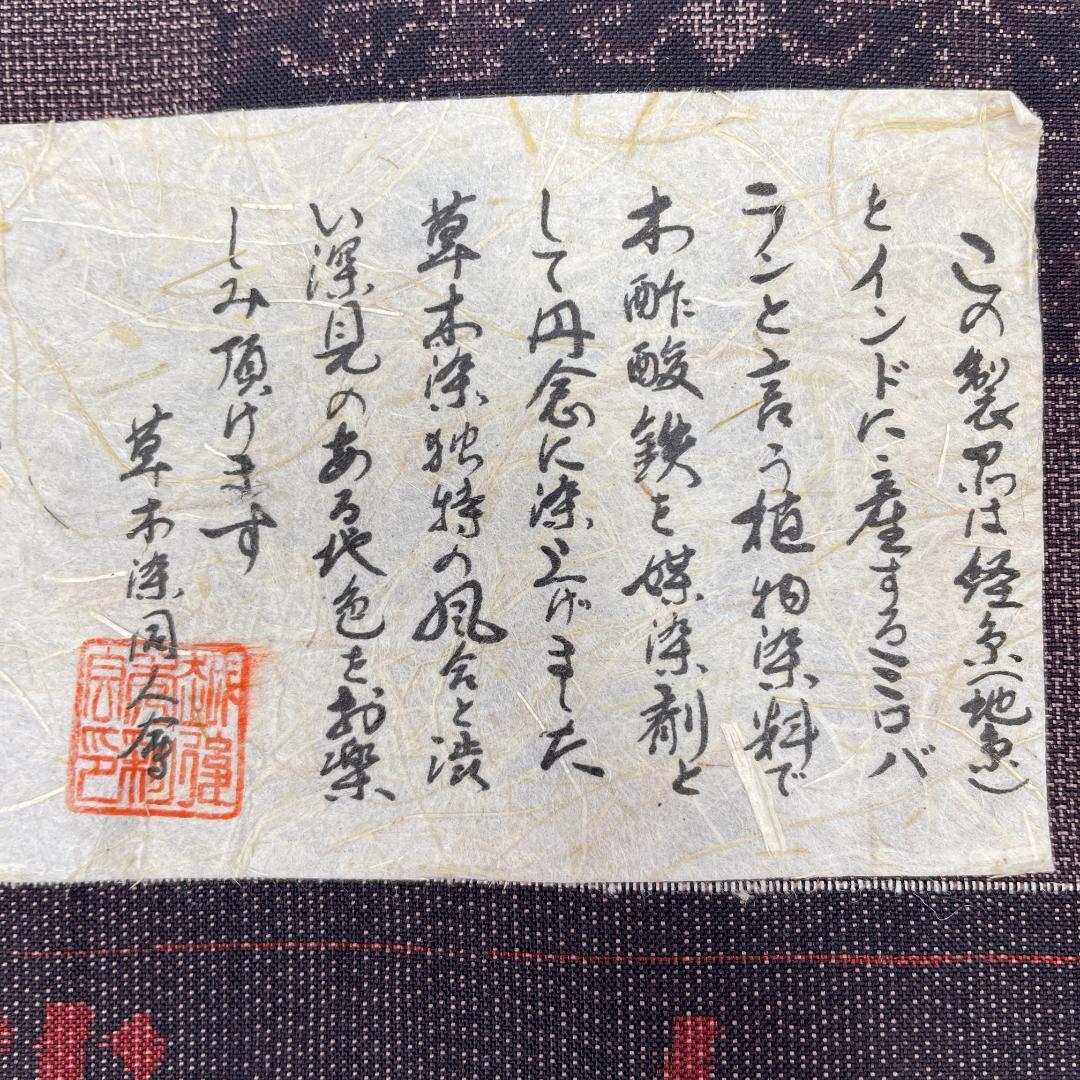 この製品は経糸(地糸)
とインドに産するミロバ
ランと言う植物染料で
木酢酸鉄を媒染剤と
して丹念に染上げました
草木染独特の風合と渋
い深見のある地色をお楽
しみ頂けます
草木染同人会